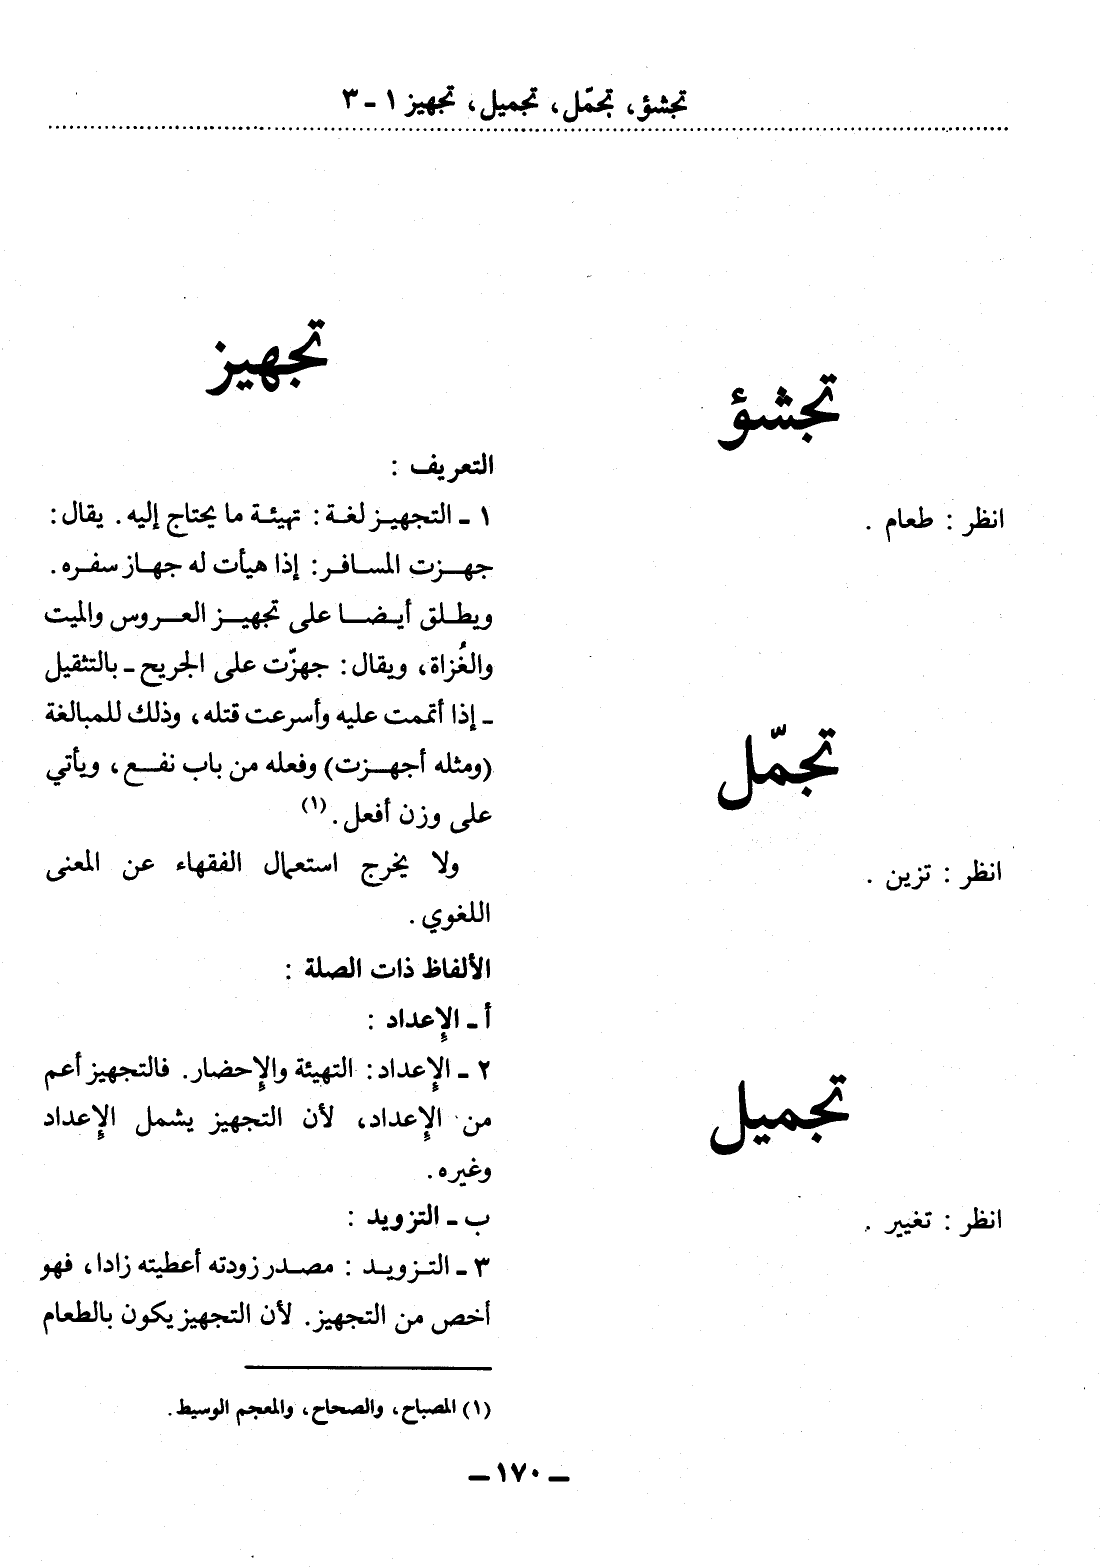 تجشؤ، تجمّل، تجميل، تجهيز ١ - ٣
تجشؤ
انظر : طعام .
تجمّل
انظر : تزين .
تجميل
انظر : تغيير .
تجهيز
التعريف :
١ - التجهيز لغة : تهيئة ما يحتاج إليه . يقال :
جهزت المسافر : إذا هيأت له جهاز سفره .
ويطلق أيضا على تجهيز العروس والميت
والغُزاة، ويقال : جهزّت على الجريح - بالتثقيل
- إذا أتممت عليه وأسرعت قتله، وذلك للمبالغة
(ومثله أجهزت) وفعله من باب نفع، ويأتي
على وزن أفعل . (١)
ولا يخرج استعمال الفقهاء عن المعنى
اللغوي .
الألفاظ ذات الصلة :
أ - الإعداد :
٢ - الإعداد : التهيئة والإحضار. فالتجهيز أعم
من الإعداد، لأن التجهيز يشمل الإعداد
وغيره .
ب - التزويد :
٣ - التزويد : مصدر زودته أعطيته زادا، فهو
أخص من التجهيز. لأن التجهيز يكون بالطعام
(١) المصباح، والصحاح، والمعجم الوسيط .
- ١٧٠ -